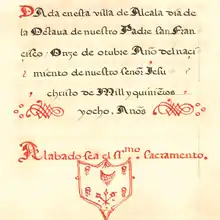 Dada enesta villa de Alcala dia de
la Octava de nuestro Padre san Fran
cisco. Onze de otubre Año del naci
miento de nuestro señor Jesu
christo de Mill y quinientos
yocho. Años
Alabado sea el ss.mo sacramento.